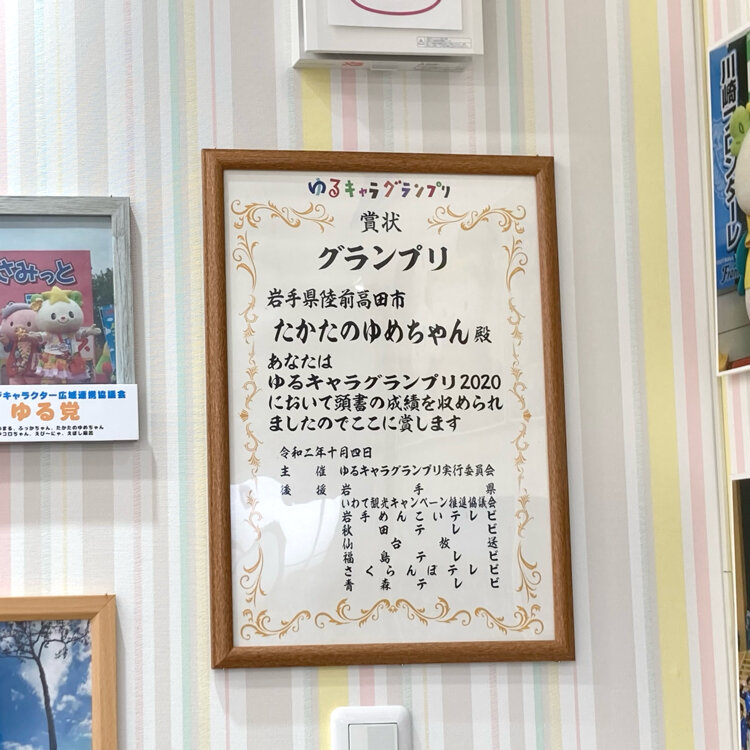 ゆるキャラグランプリ
賞状
グランプリ
岩手県陸前高田市
たかたのゆめちゃん殿
あなたは
ゆるキャラグランプリ2020
において頭書の成績を収められ
ましたのでここに賞します
令和二年十月四日
主催 ゆるキャラグランプリ実行委員会
後援 岩手県
いわて観光キャンペーン推進協議会
岩手めんこいテレビ
秋田テレビ
仙台放送
福島テレビ
さくらんぼテレビ
青森テレビ
さみっと
キャラクター広域連携協議会
ゆる党
まる、ふっかちゃん、たかたのゆめちゃん
コロちゃん、えび~にゃ、えぼし麻呂
川崎フロンターレ